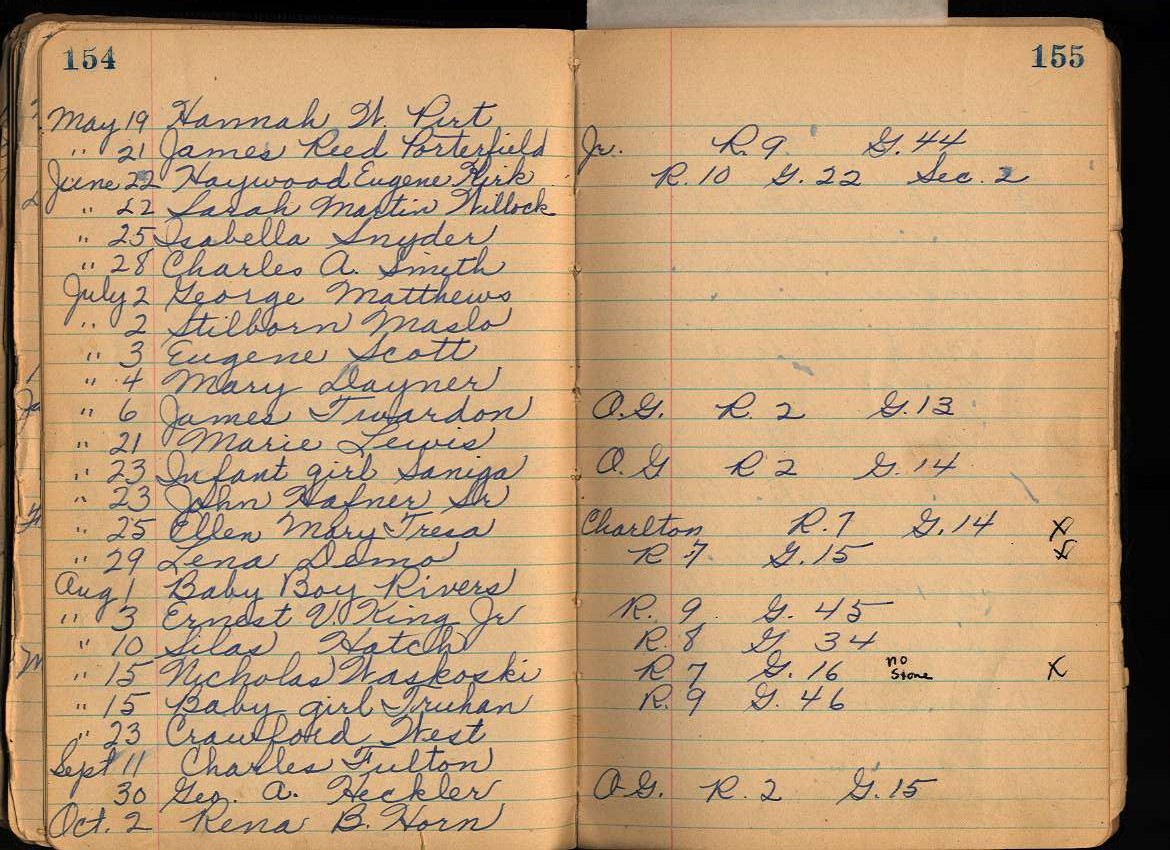 154 155
May 19 Hannah W. Pirt
" 21 James Reed Porterfield Jr. R. 9 G. 44
June 22 Haywood Eugene Kirk R. 10 G. 22 Sec. 2
" 22 Sarah Martin Willock
" 25 Isabella Snyder
" 28 Charles A. Smith
July 2 George Matthews
" 2 Stilborn Maslo
" 3 Eugene Scott
" 4 Mary Dayner
" 6 James Twardon O.G. R. 2 G. 13
" 21 Marie Lewis
" 23 Infant girl Saniga O.G R 2 G. 14
" 23 John Hafner Sr
" 25 Ellen Mary Tresa Charlton R. 7 G. 14 X
" 29 Lena Demo R 7 G. 15 X
Aug 1 Baby Boy Rivers
" 3 Ernest V. King Jr R. 9 G. 45
" 10 Silas Hatch R. 8 G 34
" 15 Nicholas Waskoski R 7 G. 16 no stone X
" 15 Baby girl Truhan R. 9 G. 46
" 23 Crawford West
Sept 11 Charles Fulton
30 Geo. A. Heckler O.G. R. 2 G. 15
Oct. 2 Rena B. Horn